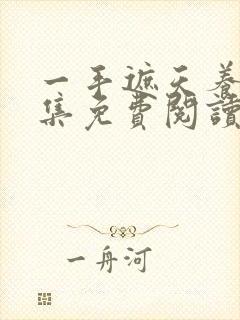 一手遮天养
集免費閱讀
一舟河